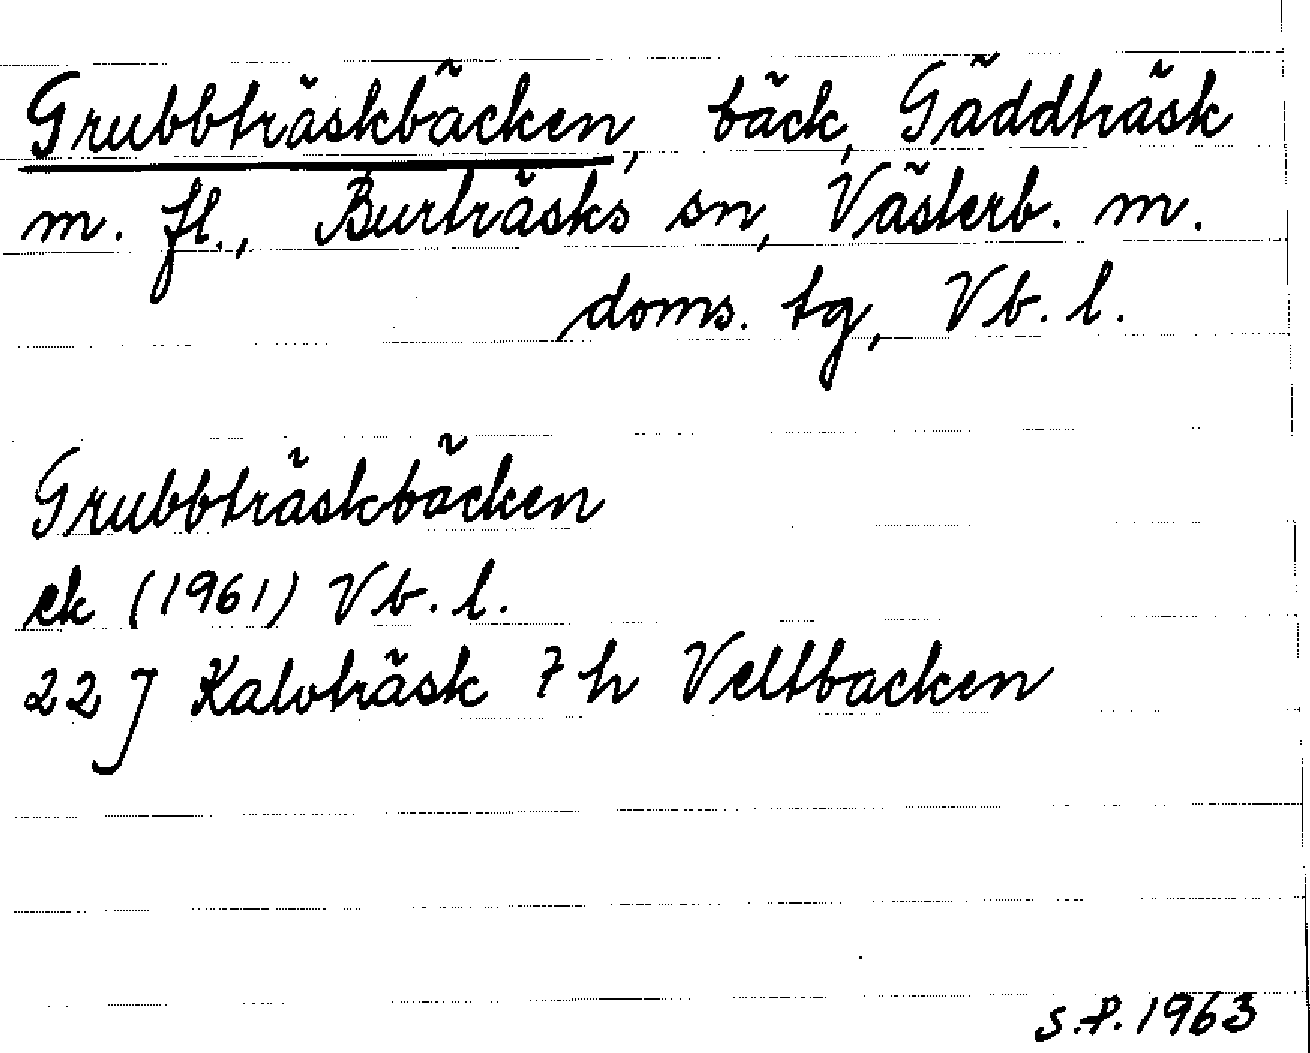 Grubbträskbäcken, bäck, Gäddträsk
m. fl., Burträsks sn, Västerb. m.
doms. tg, Vb. l.
Grubbträskbäcken
ek (1961) Vb. l.
22 J Kalvträsk 7 h Veltbacken
S.P. 1963